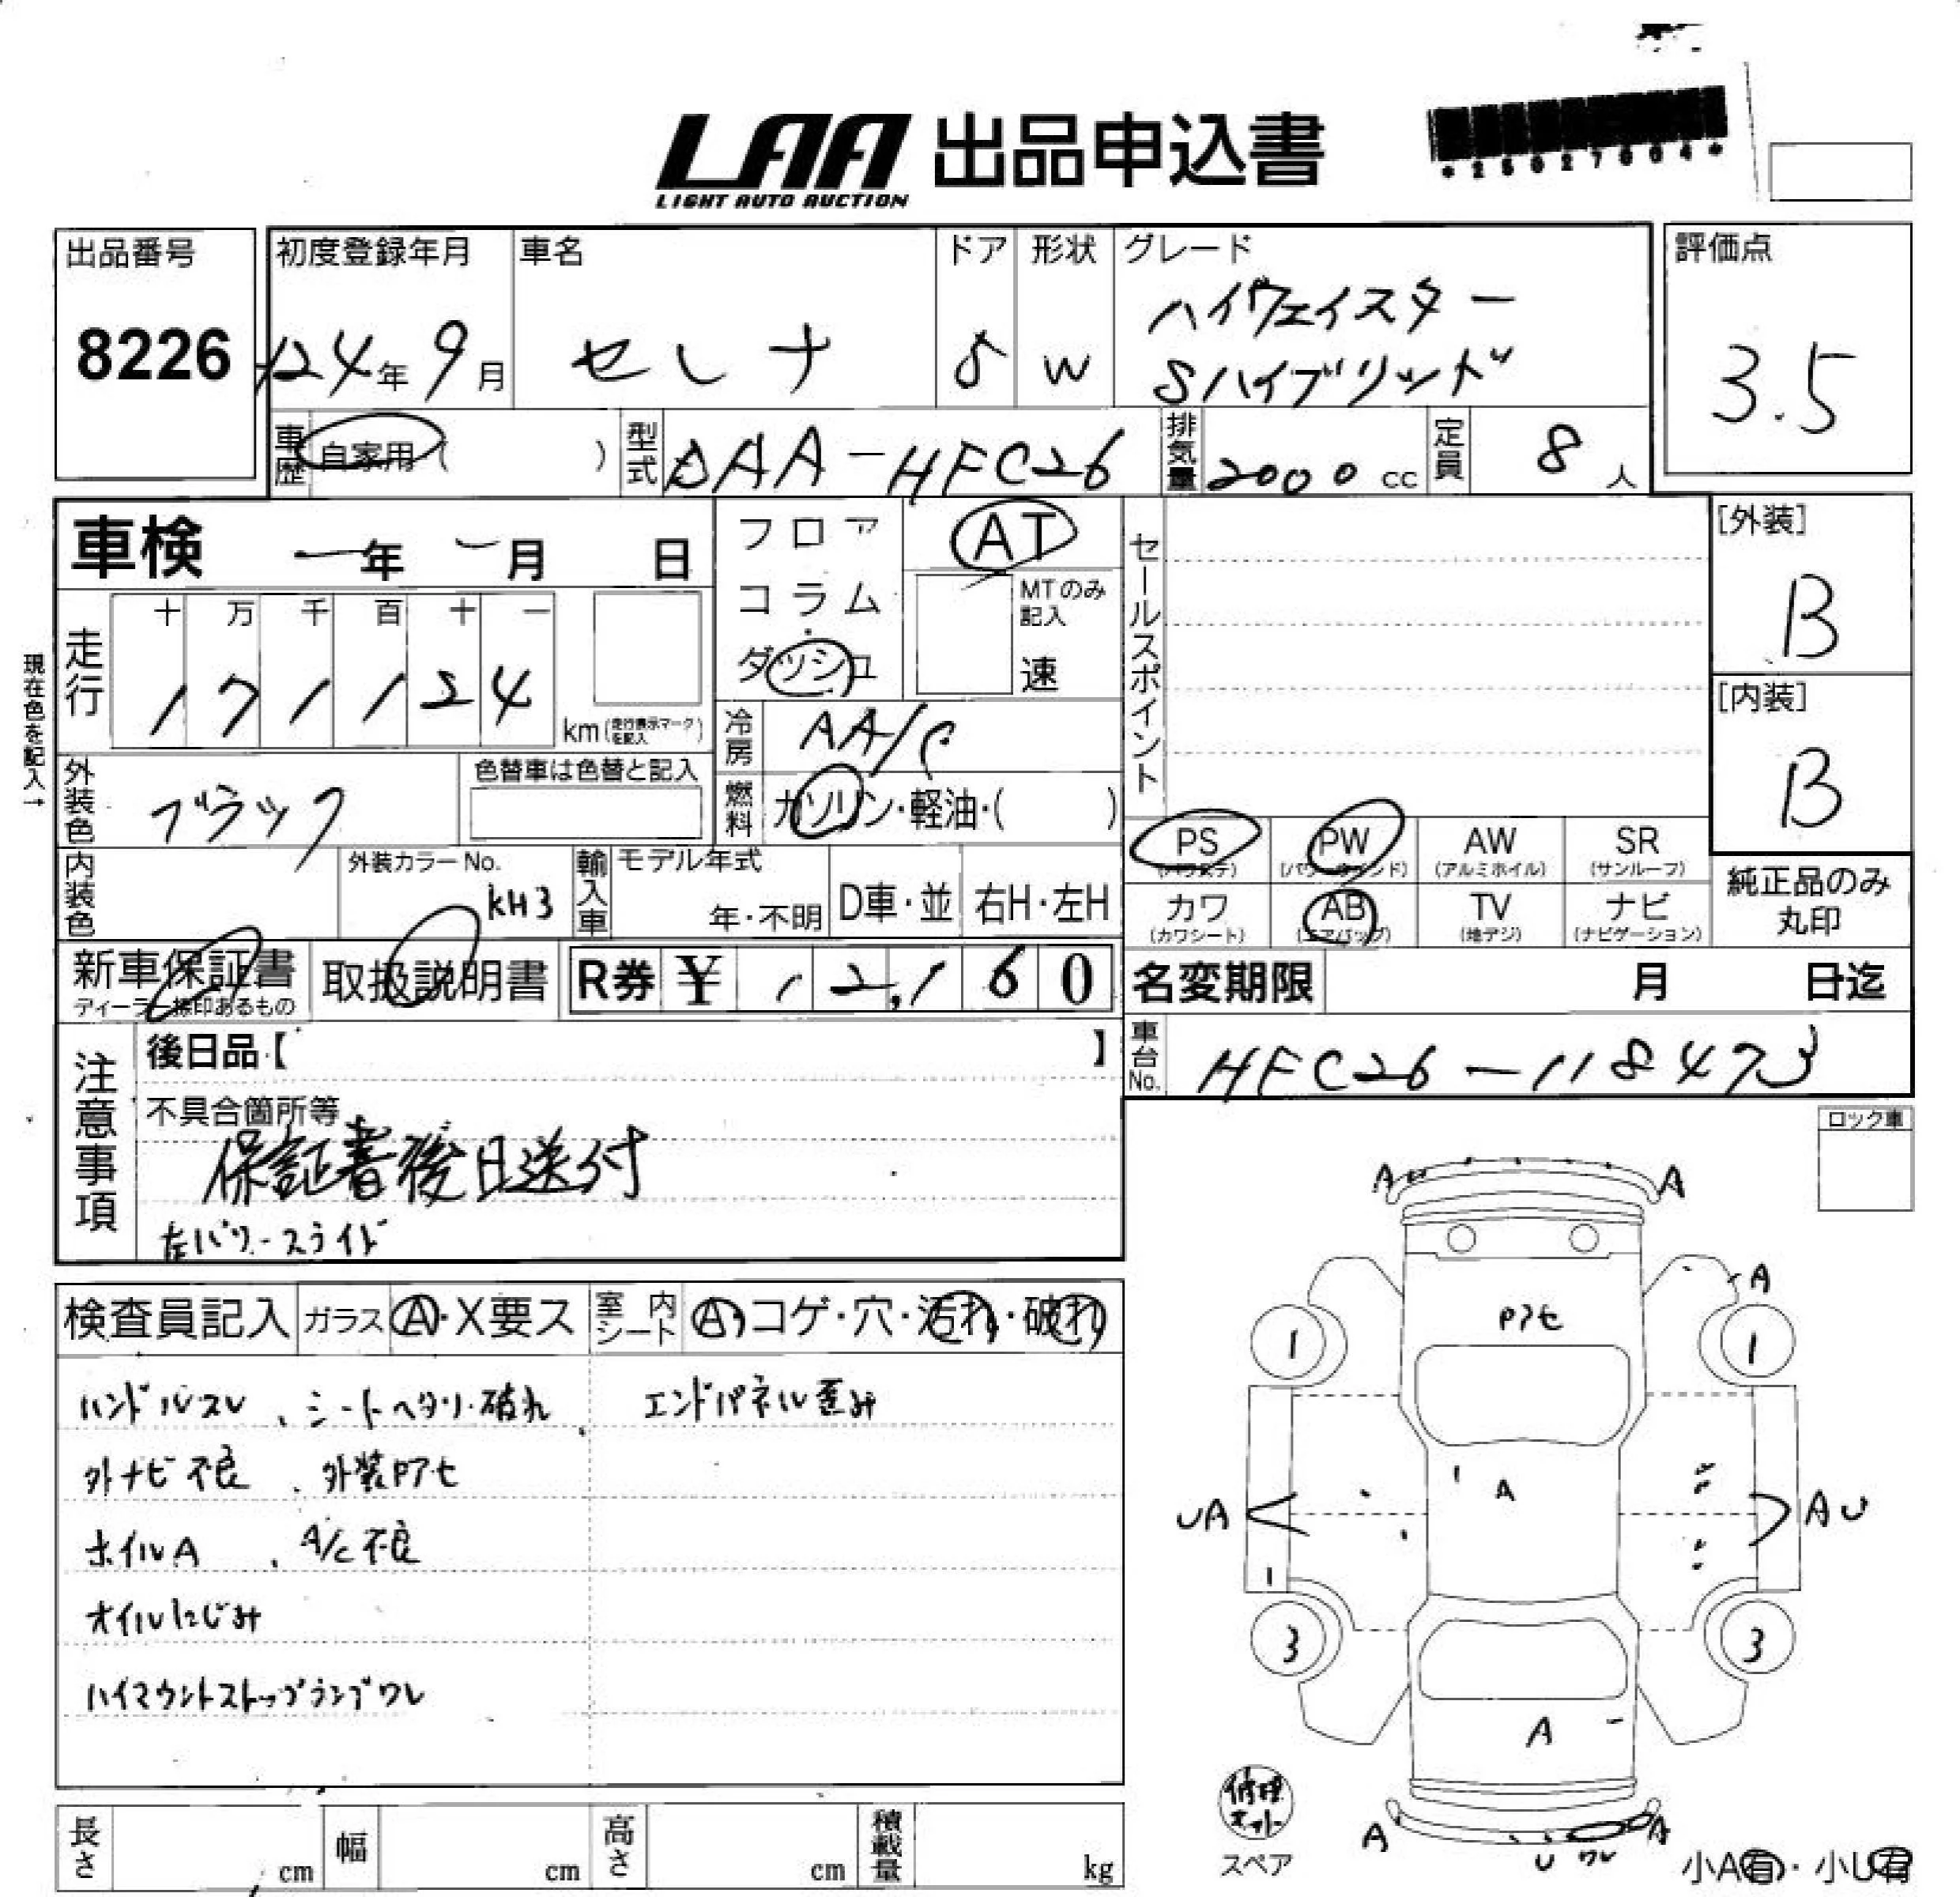 LAA 出品申込書
LIGHT AUTO AUCTION
*25027604*
出品番号
8226
初度登録年月
H24年9月
車名
セレナ
ドア
5
形状
W
グレード
ハイウェイスター
Sハイブリッド
評価点
3.5
車歴 自家用( )
型式 DAA-HFC26
排気量 2000 cc
定員 8 人
車検 ー年 ー月 日
フロア
コラム
ダッシュ
AT
MTのみ記入
速
セールスポイント
[外装]
B
[内装]
B
現在色を記入→
走行
十 万 千 百 十 一
1 7 1 1 2 4
km(走行表示マークを記入)
冷房 AA/C
燃料 ガソリン・軽油・( )
外装色 ブラック
色替車は色替と記入
内装色
外装カラーNo.
KH3
輸入車
モデル年式
年・不明
D車・並
右H・左H
PS
(パワステ)
PW
(パワーウインド)
AW
(アルミホイル)
SR
(サンルーフ)
カワ
(カワシート)
AB
(エアバッグ)
TV
(地デジ)
ナビ
(ナビゲーション)
純正品のみ
丸印
新車保証書
ディーラー捺印あるもの
取扱説明書
R券 ¥ 12,160
名変期限 月 日迄
車台No. HFC26-118473
注意事項
後日品【 】
不具合箇所等
保証書後日送付
左パワースライド
ロック車
検査員記入
ガラス A・X要ス
室内シート A・コゲ・穴・汚れ・破れ
ハンドルスレ、シートヘタリ・破れ
エンドパネル歪み
外ナビ不良、外装Pアセ
ホイルA、A/C不良
オイルにじみ
ハイマウントストップランプワレ
A A
A
Pアセ
1 1
A
UA AU
1
3 3
A
A A
U ワレ
修理キット
スペア
小A有・小U有
長さ cm
幅 cm
高さ cm
積載量 kg